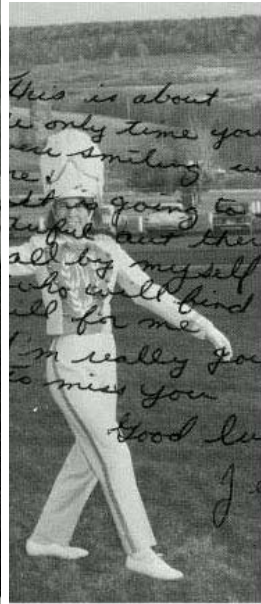 This is about
only time you
smiling
me.
It is going to
awful out ther
all by myself
who will find
ill for me
I'm really goi
to miss you
Good lu